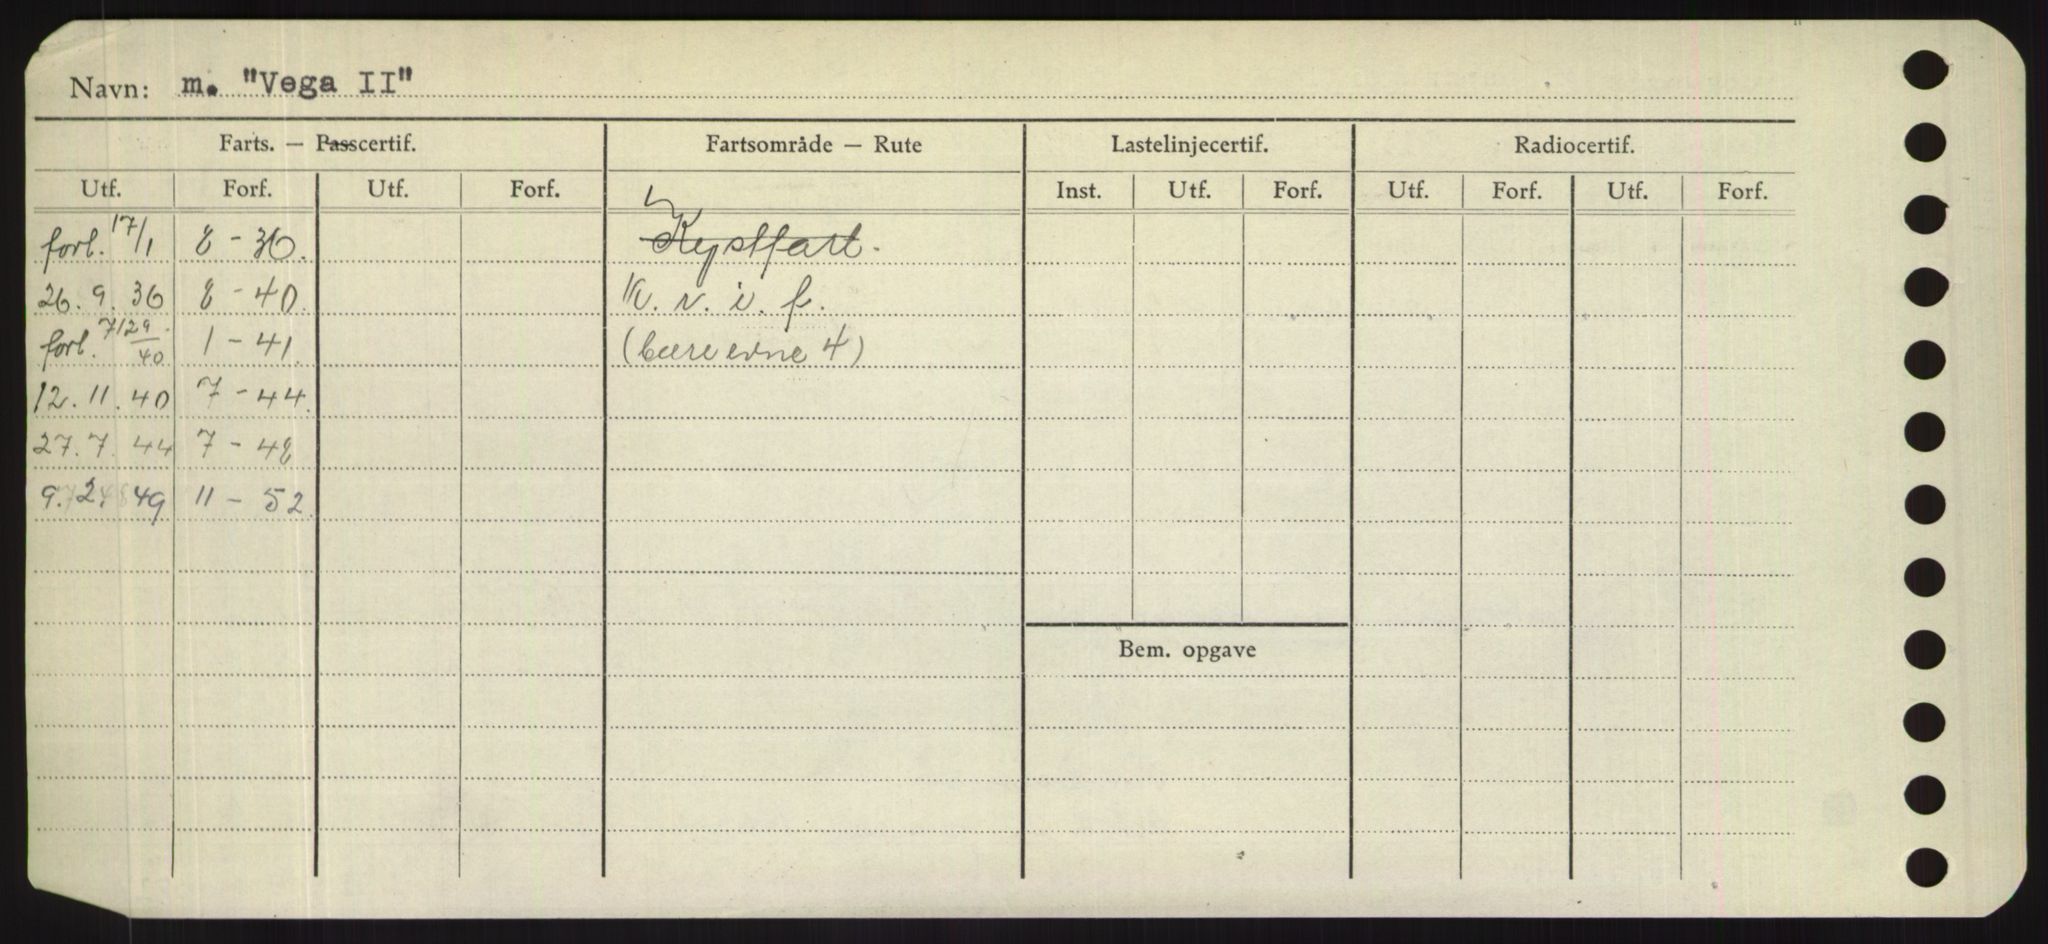 Navn: m. "Vega II"
Farts. — Passcertif. Fartsområde — Rute Lastelinjecertif. Radiocertif.
Utf. Forf. Utf. Forf. Inst. Utf. Forf. Utf. Forf. Utf. Forf.
forl. 17/1 8 - 36. Kystfart.
26.9.36 8 - 40. K. v. i. f.
forl. 29/40 1 - 41. (bæreevne 4)
12.11.40 7 - 44.
27.7.44 7 - 48
9.2.49 11 - 52.
Bem. opgave